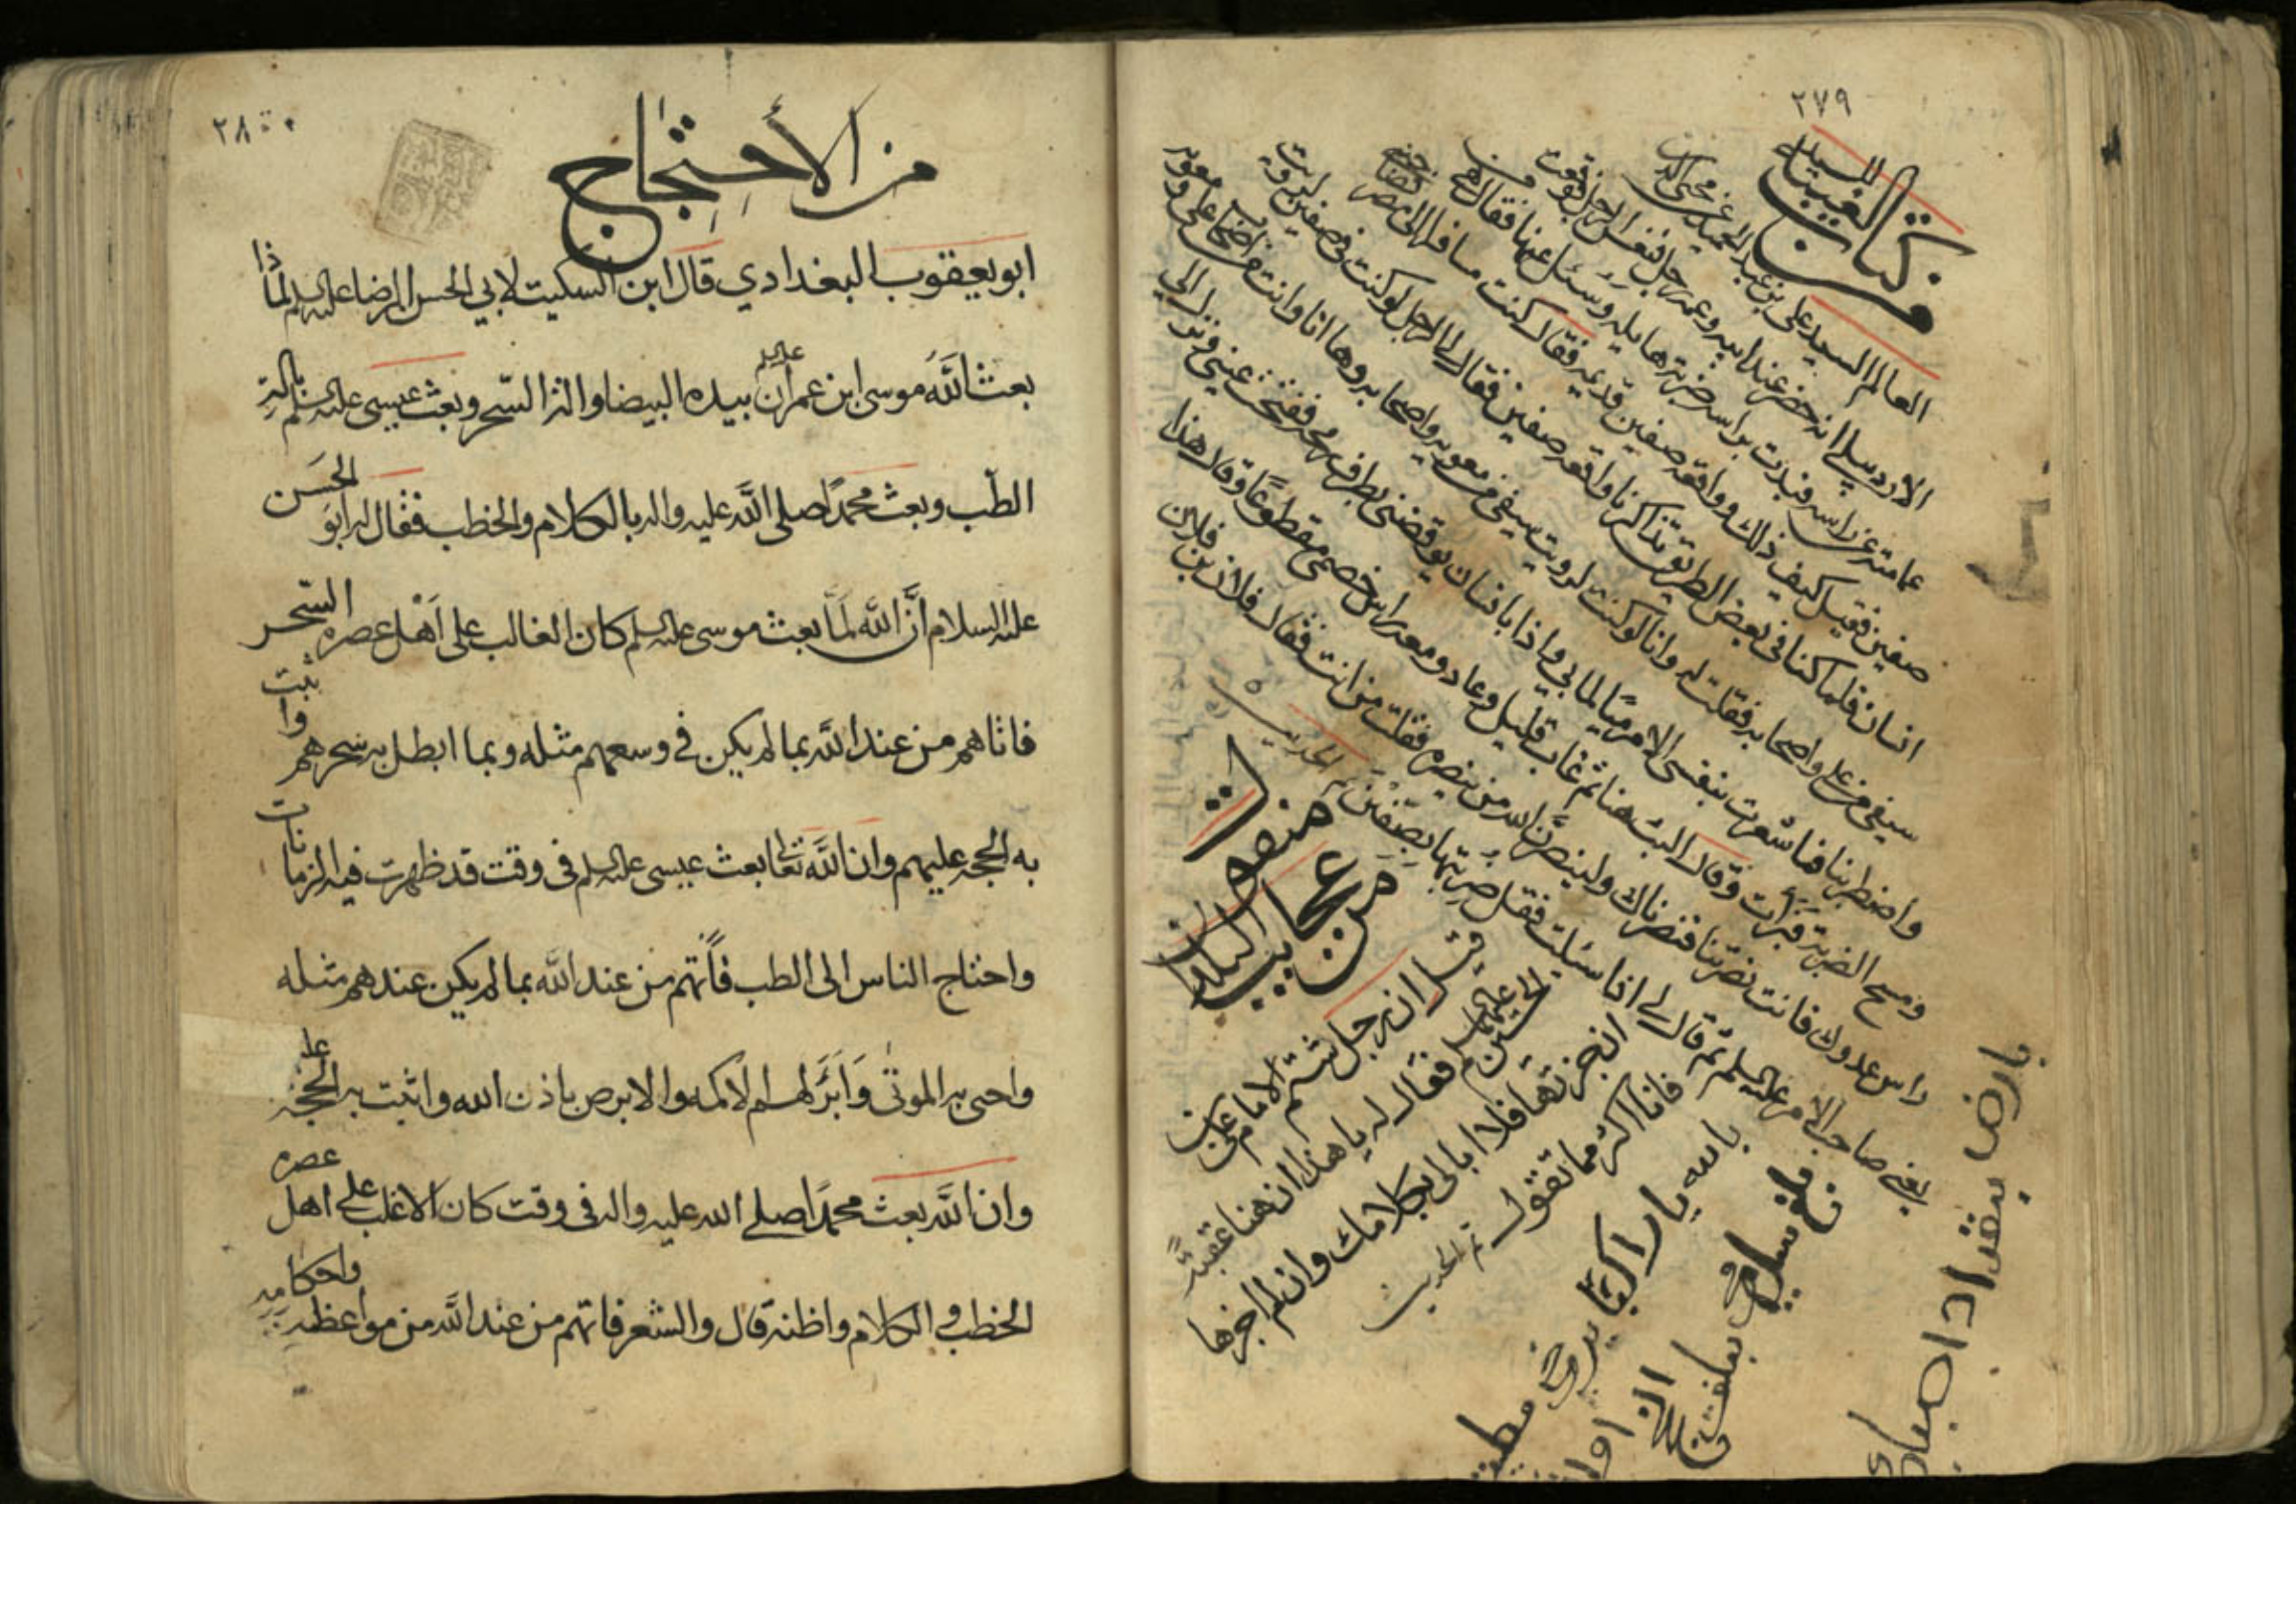 ٢٧٩
من كتاب الغيبة
للسيد
العالم السعيد علي بن عبد الحميد عن محيي الدين
الاردبيلي انه حضر عند ابيه وعمه رجل فنعس الرجل فوقعت
عمامته عن راسه فبدت براسه ضربة هايلة وسئل عنها فقال هي من
صفين فقيل كيف ذلك ووقعة صفين قديمة فقال كنت مسافرا الى مصر
انسان فلما كنا في بعض الطريق تذاكرنا واقعة صفين فقال لي الرجل لو كنت في صفين لرويت
سيفي من علي واصحابه فقلت له وانا لو كنت لرويت سيفي من معويه واصحابه وها انا وانت من اصحاب علي ومعويه
واضطربنا فما شعرت بنفسي الا مرميا لما بي واذا بانسان يوقضني بطرف رمحه ففتحت عيني فنزل الي
ومسح الضربة فبرات وقال البث هنا ثم غاب قليل وعاد ومعه راس خصمي مقطوعا وقال هذا
راس عدوك فانت نصرتنا فنصرناك ولينصرن الله من ينصره فقلت من انت فقال فلان بن فلان
يعني صاحب الامر عليه السلم ثم قال لي اذا سئلت فقل ضربتها بصفين تم الحديث
من عجايب البلدان
منقولة
قيل ان رجل شتم الامام علي بن
الحسين عليهما السلم فقال له يا هذا ان هنا عقبة
ان جزتها فلا ابالي بكلامك وان لم اجزها
فانا اكثر مما تقول تم الحديث
بالله يا راكبا
بارض بغداد
٢٨٠
من الأحتجاج
ابو يعقوب البغدادي قال ابن السكيت لابي الحسن الرضا عليه السلم لماذا
بعث الله موسى ابن عمران عليه السلم بيده البيضا والة السحر وبعث عيسى عليه السلم بالة
الطب وبعث محمدا صلى الله عليه واله بالكلام والخطب فقال له ابو الحسن
عليه السلام ان الله لما بعث موسى عليه السلم كان الغالب على اهل عصره السحر
فاتاهم من عند الله بما لم يكن في وسعهم مثله وبما ابطل به سحرهم واثبت
به الحجة عليهم وان الله تعالى بعث عيسى عليه السلم في وقت قد ظهرت فيه الزمانات
واحتاج الناس الى الطب فأتهم من عند الله بما لم يكن عندهم مثله
واحى به الموتى وابرَأ لهم الاكمه والابرص باذن الله واثبت به الحجة عل
وان الله بعث محمدا صلى الله عليه واله في وقت كان الاغلب على اهل عصره
الخطب والكلام واظنه قال والشعر فاتهم من عند الله من مواعظه واحكامه